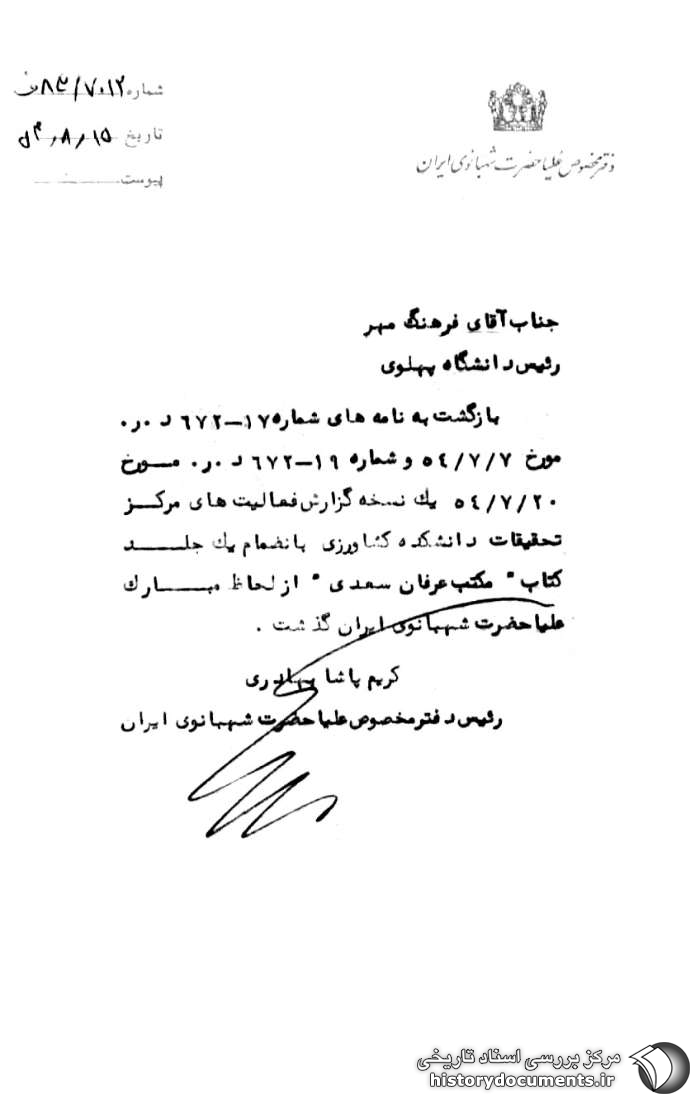 دفتر مخصوص علیاحضرت شهبانوی ایران
شماره
تاریخ ۱۵ر۸ر
پیوست
جناب آقای فرهنگ مهر
رئیس دانشگاه پهلوی
بازگشت به نامه های شماره ۱۷–۶۷۲ د.ر.
مورخ ۵۴/۷/۷ و شماره ۱۹–۶۷۲ د.ر. مورخ
۵۴/۷/۲۰ یک نسخه گزارش فعالیت های مرکز
تحقیقات دانشکده کشاورزی بانضمام یک جلد
کتاب " مکتب عرفان سعدی " از لحاظ مبارک
علیاحضرت شهبانوی ایران گذشت .
کریم پاشا بهادری
رئیس دفتر مخصوص علیاحضرت شهبانوی ایران
مرکز بررسی اسناد تاریخی
historydocuments.ir